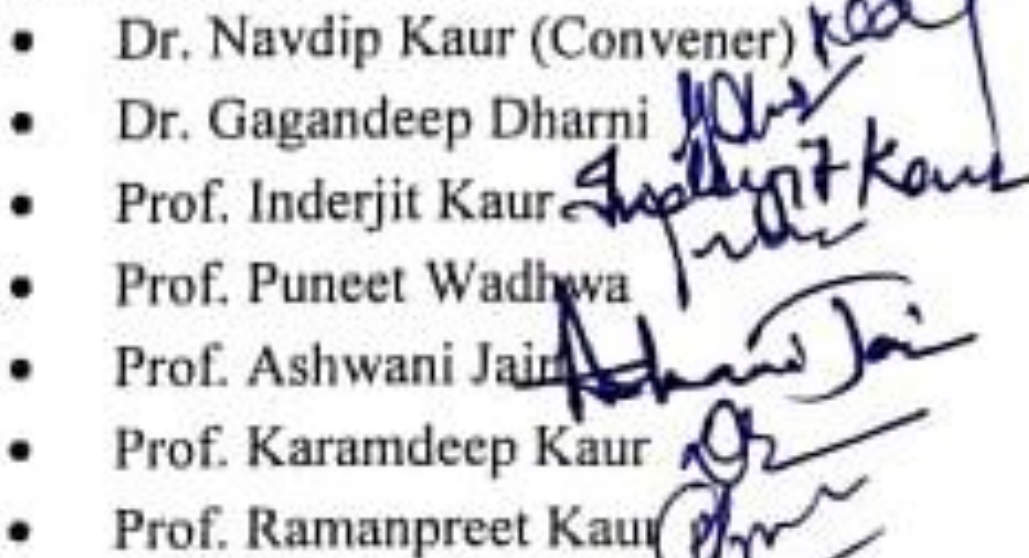 • Dr. Navdip Kaur (Convener)
• Dr. Gagandeep Dharni
• Prof. Inderjit Kaur Inderjit Kaur
• Prof. Puneet Wadhwa
• Prof. Ashwani Jain Ashwani Jain
• Prof. Karamdeep Kaur
• Prof. Ramanpreet Kaur